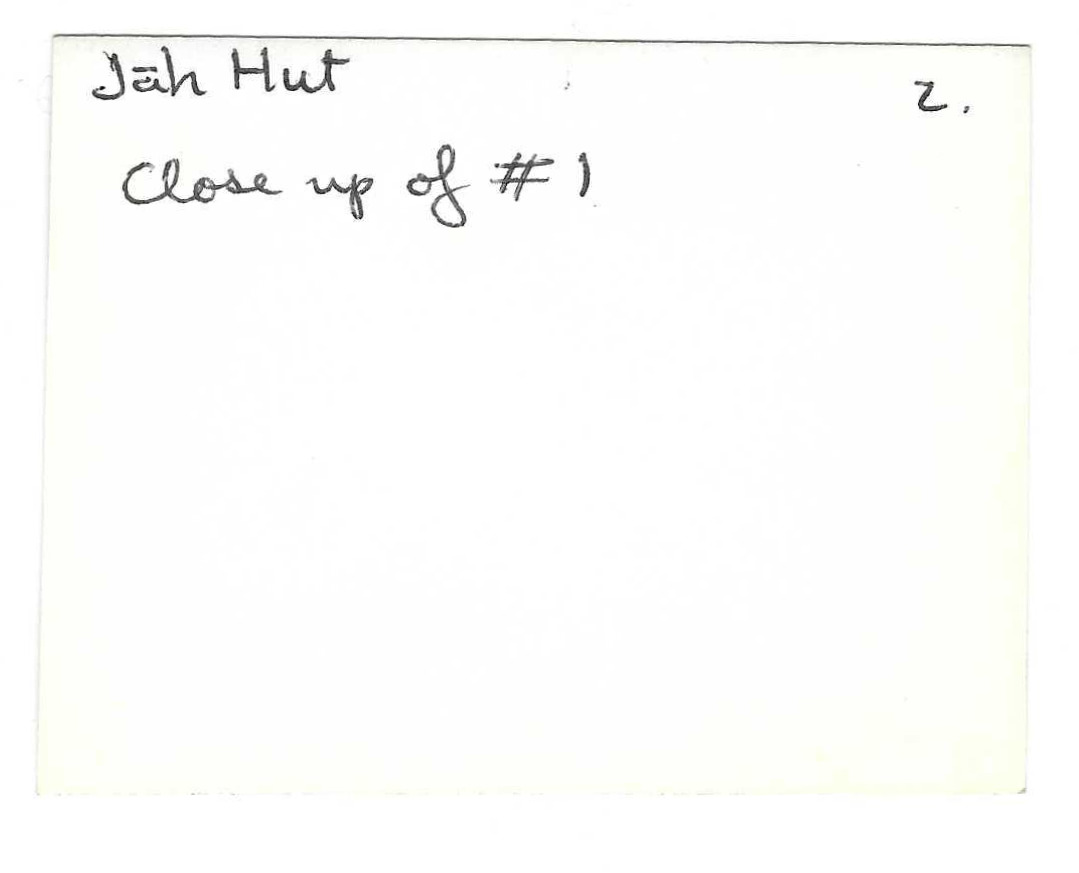 Jāh Hut
2.
Close up of # 1